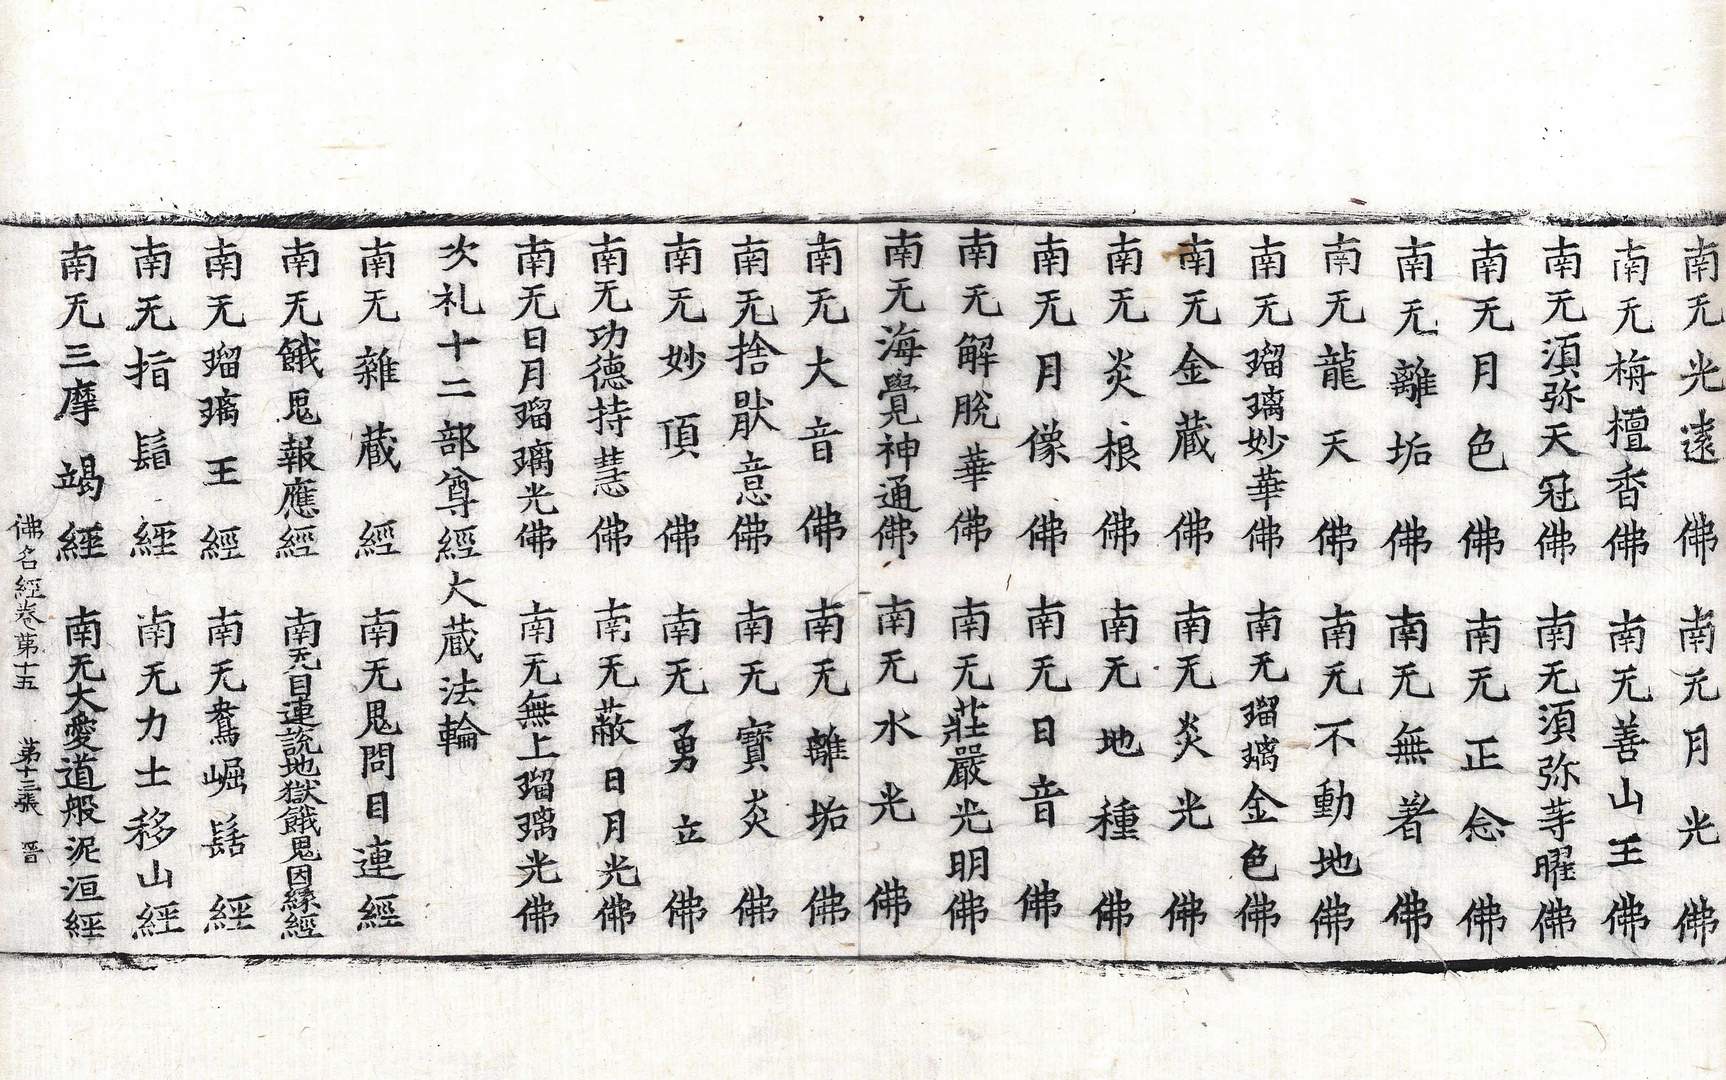 南无光遠佛　南无月光佛
南无栴檀香佛　南无善山王佛
南无湏弥天冠佛　南无湏弥䓁曜佛
南无月色佛　南无正念佛
南无離垢佛　南无無著佛
南无龍天佛　南无不動地佛
南无瑠璃妙華佛　南无瑠璃金色佛
南无金藏佛　南无炎光佛
南无炎根佛　南无地種佛
南无月像佛　南无日音佛
南无解脫華佛　南无莊嚴光明佛
南无海覺神通佛　南无水光佛
南无大音佛　南无離垢佛
南无捨猒意佛　南无寶炎佛
南无妙頂佛　南无勇立佛
南无功德持慧佛　南无蔽日月光佛
南无日月瑠璃光佛　南无無上瑠璃光佛
次礼十二部尊經大藏法輪
南无雜藏經　南无鬼問目連經
南无餓鬼報應經　南无目連說地獄餓鬼因緣經
南无瑠璃王經　南无鴦崛髻經
南无指鬘經　南无力士移山經
南无三摩竭經　南无大愛道般泥洹經
佛名經卷第十五　第十三張